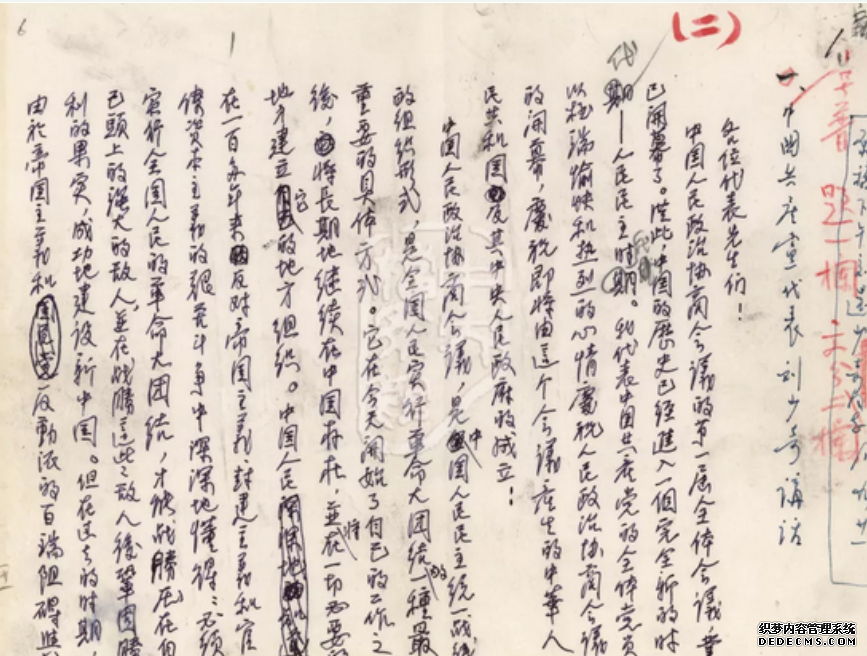 (二)
一、中国共产党代表刘少奇讲话
各位代表先生们！
中国人民政治协商会議的第一届全体会議業
已開幕了。從此，中国的歷史已経進入一個完全新的时
代——人民民主时代。我代表中国共產党的全体党員
以極端愉快和热烈的心情慶祝人民政治协商会議
的開幕，慶祝即将由这个会議産生的中華人
民共和国及其中央人民政府的成立！
中国人民政治协商会議，是中国人民民主統一战线
的組织形式，是全国人民实行革命大团結的一種最
重要的具体方式。它在今天開始了自己的工作之
後，将長期地继续在中国存在，並将在一切必要的
地方建立它的地方組织。中国人民
在一百多年来反对帝国主義封建主義和官
僚資本主義的艰苦斗争中深深地懂得：必须
实行全国人民的革命大团結，才能战勝压在自
己頭上的强大的敌人，並在战勝这些敌人後鞏固勝
利的果实，成功地建设新中国。但在过去的时期，
由於帝国主義和国民党反動派的百端阻碍
6
1
织梦内容管理系统
DEDECMS.COM